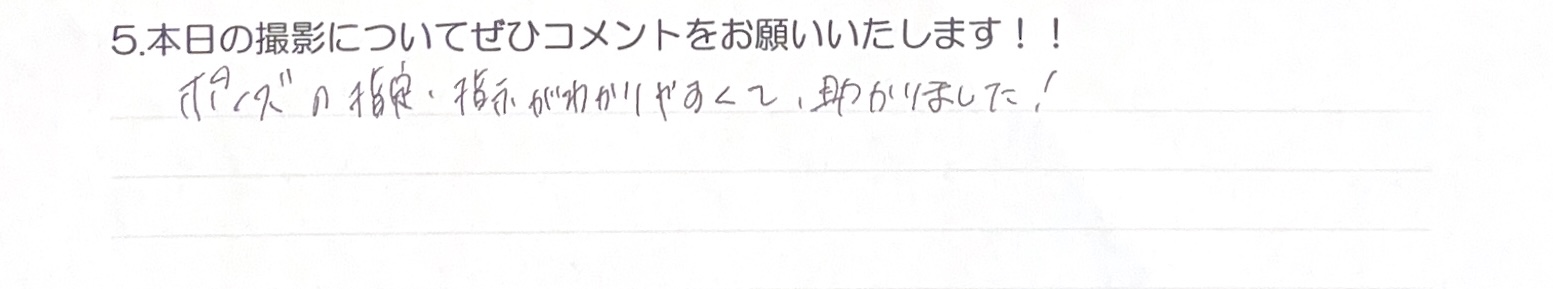 5.本日の撮影についてぜひコメントをお願いいたします！！
ポーズの指定・指示がわかりやすくて、助かりました！